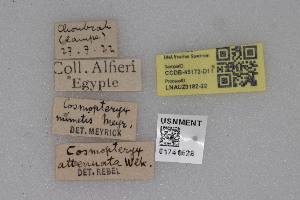 Choubrah
(Lampe)
27.7.22
Coll. Alfieri
Egypte
Cosmopteryx
mimetis Meyr.
DET. MEYRICK
Cosmopteryx
attenuata Wek.
DET. REBEL
DNA Barcode Specimen
SampleID:
ProcessID:
LNAUZ3192-22
USNMENT
01740628